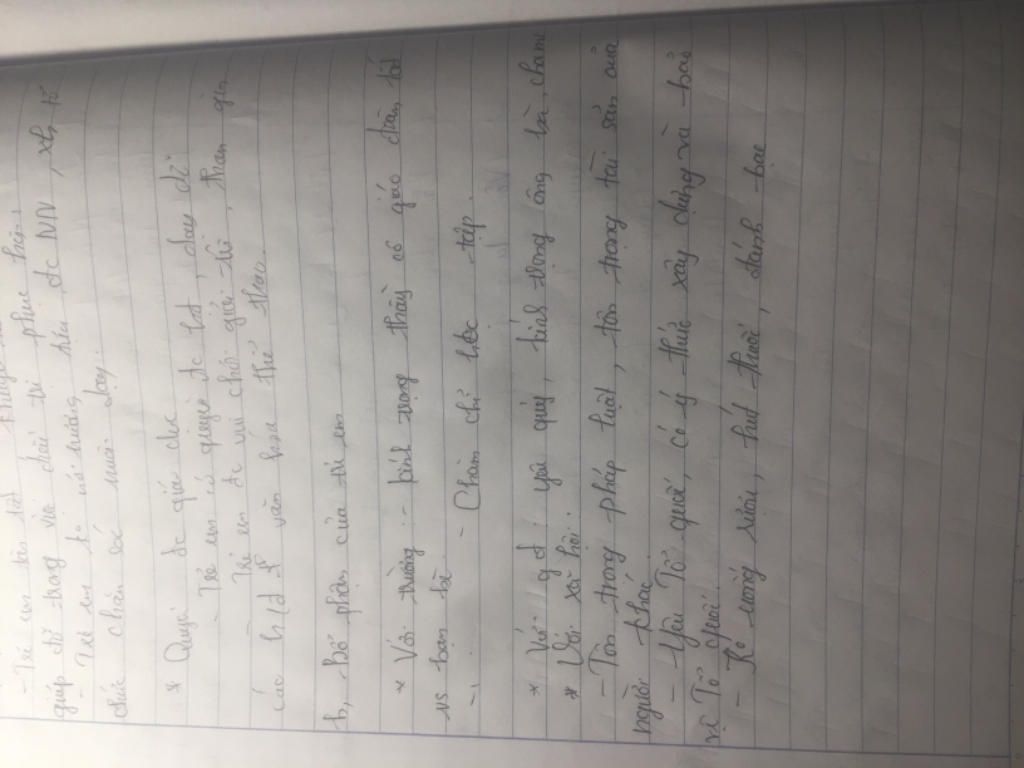 - Trẻ em tàn tật
giúp đỡ trong việc điều trị phục hồi
- Trẻ em ko nơi nương tựa đc NN, xh tổ
chức chăm sóc nuôi dạy.
* Quyền đc giáo dục
- Trẻ em có quyền đc học, dạy dỗ
- Trẻ em đc vui chơi giải trí, tham gia
các h/đ văn hóa thể thao.
b, Bổ phận của trẻ em
* Với trường: - kính trọng thầy cô giáo, đoàn kết
vs bạn bè
- Chăm chỉ học tập.
* Với gđ yêu quý, kính trọng ông bà, cha mẹ
* Với xã hội:
- Tôn trọng pháp luật, tôn trọng tài sản của
người khác
- Yêu Tổ quốc, có ý thức xây dựng và bảo
vệ Tổ quốc.
- Ko uống rượu, hút thuốc, đánh bạc